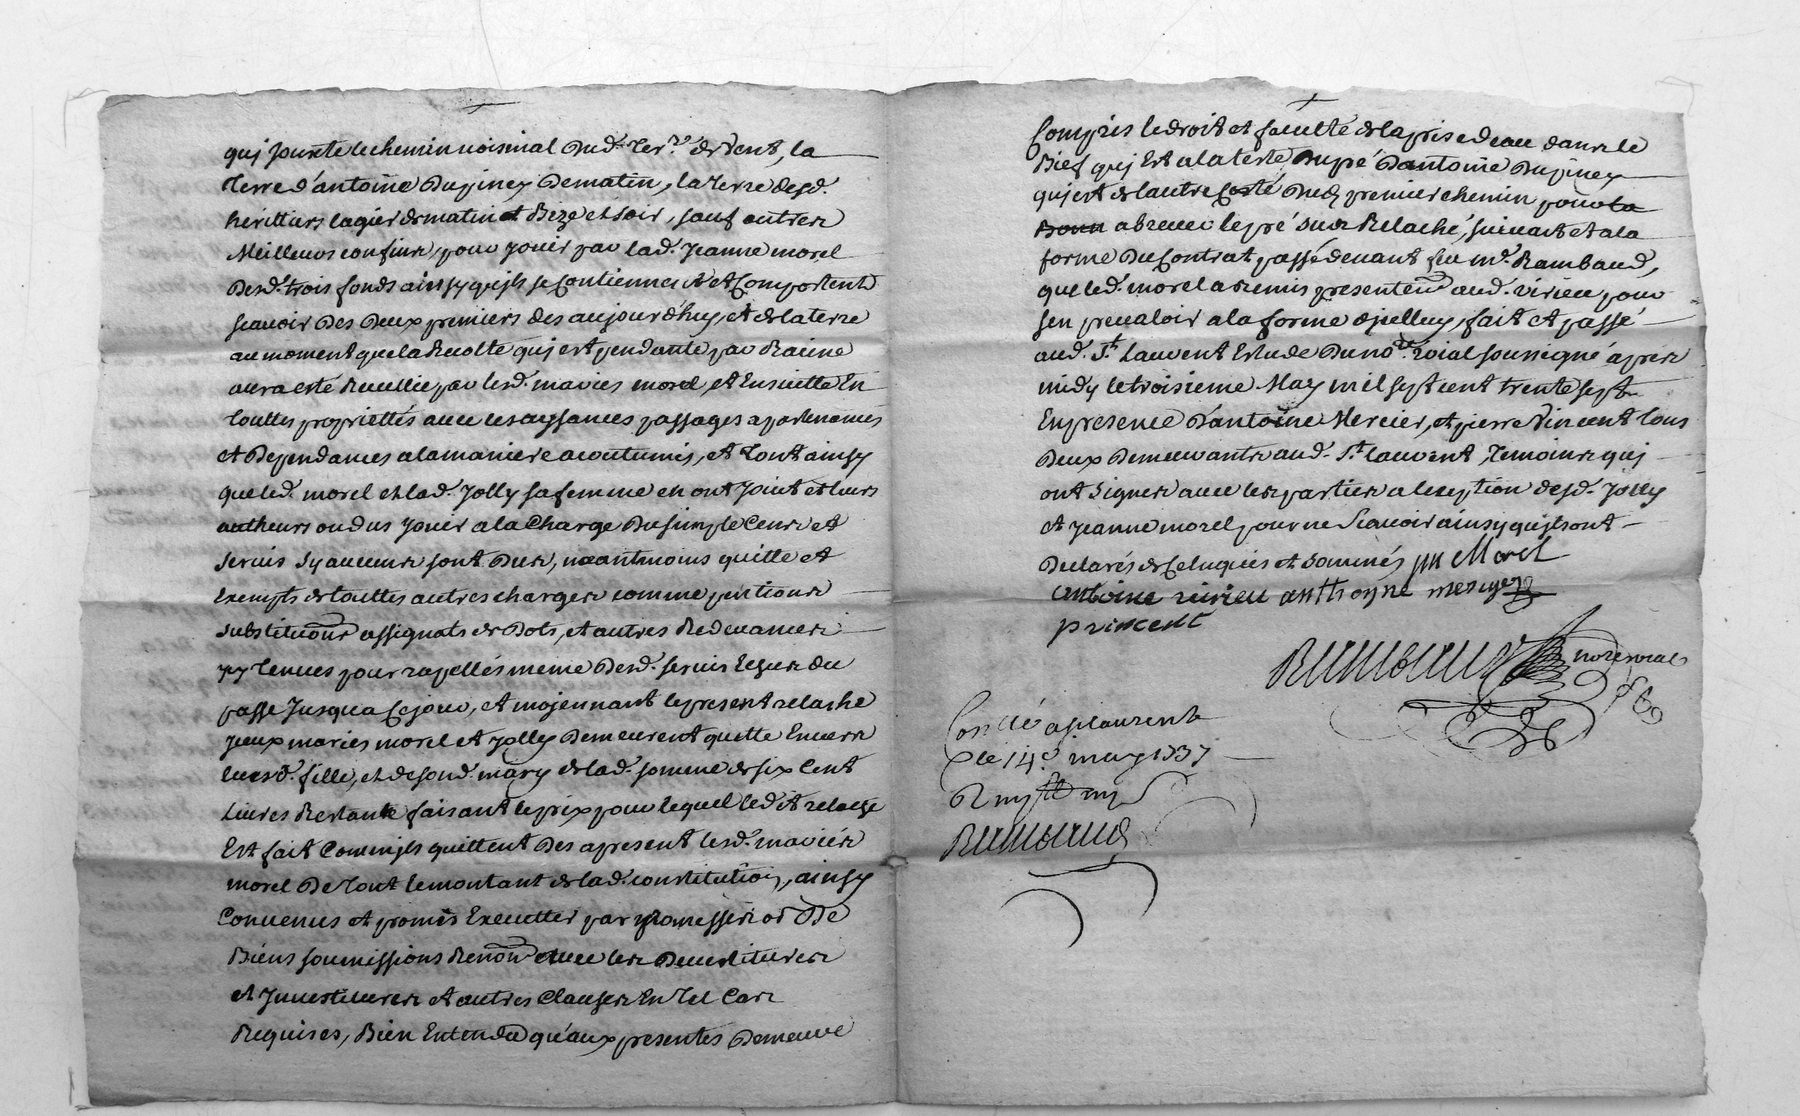 qui jouxte le chemin voisinal dud. Ter.re de vent, la
Terre d'antoine Dupiney De matin, la Terre desd.
herittiers lagier de matin et Bize et soir, sauf autres
Meilleurs confins, pour jouir par lad. Jeanne morel
Desd. trois fonds ainsy qu'jls se Contiennent et Comportent
scauoir Des Deux premiers des aujourd'huy, et de la terre
au moment que la Recolte qui est pendante par Racine
aura esté Recullie par lesd. maries morel, et Ensuitte En
touttes proprietté, auec les aysances passages apartenances
et Dependances a la maniere acoutumée, et Tout ainsy
que led. morel et lad. Jolly sa femme en ont Jouit et leurs
autheurs ou dus jouir a la Charge Du simple Cens et
seruis sy aucuns sont Dus, neantmoins quitte et
Exempts de touttes autres charges comme pentions
substitutions assignats de Dots, et autres Redeuances
jcy Tenues pour rapellés meme Desd. seruis Echus du
passe Jusqua Cejour, et mojennant le present relache
jceux maries morel et Jolly Demeurent quitte Enuers
leursd. fille, et de sond. mary de lad. somme de six Cent
Liures Restante faisant le prix pour lequel led. relache
Est fait Comm'jls quittent Des apresent lesd. mariés
morel De Tout le montant de lad. constitution, ainsy
Conuenus et promis Executter par promesses
Biens soumissions Renon. auec les Deuestitures
et Juuestitures et autres Clauses En Tel Cas
Requises, Bien Entendu qu'aux presentes Demeure
Compris le droit et faculté de la prise d'eau dans le
Bief qui Est a la teste Du pré D'antoine Dupiney
qui est de l'autre Costé Dud. premier chemin pour la
abreuer le pré sus Relaché, suiuant et a la
forme Du Contrat passé deuant feu m.e Rambaud,
que led. morel a remis presentem. aud. Virieu pour
sen preualoir a la forme djcelluy, fait et passé
aud. S.t Laurent Estude Du no.re roial soussigné apres
midy le troisieme May mil sept cent trente sept
En presence D'antoine Mercier, et pierre Vincent Tous
Deux Demeurants aud. S.t laurent, Temoins qui
ont signer auec les parties a lexeption desd. Jolly
et Jeanne morel pour ne Scauoir ainsy qu'jls ont
Declarés de Ce Enquis et sommés Morel
antoine virieu anthoyne mercyer
p vincent
Rambaud notre roial
Con.llé a st laurent
le 14.e may 1737
R
Rambaud